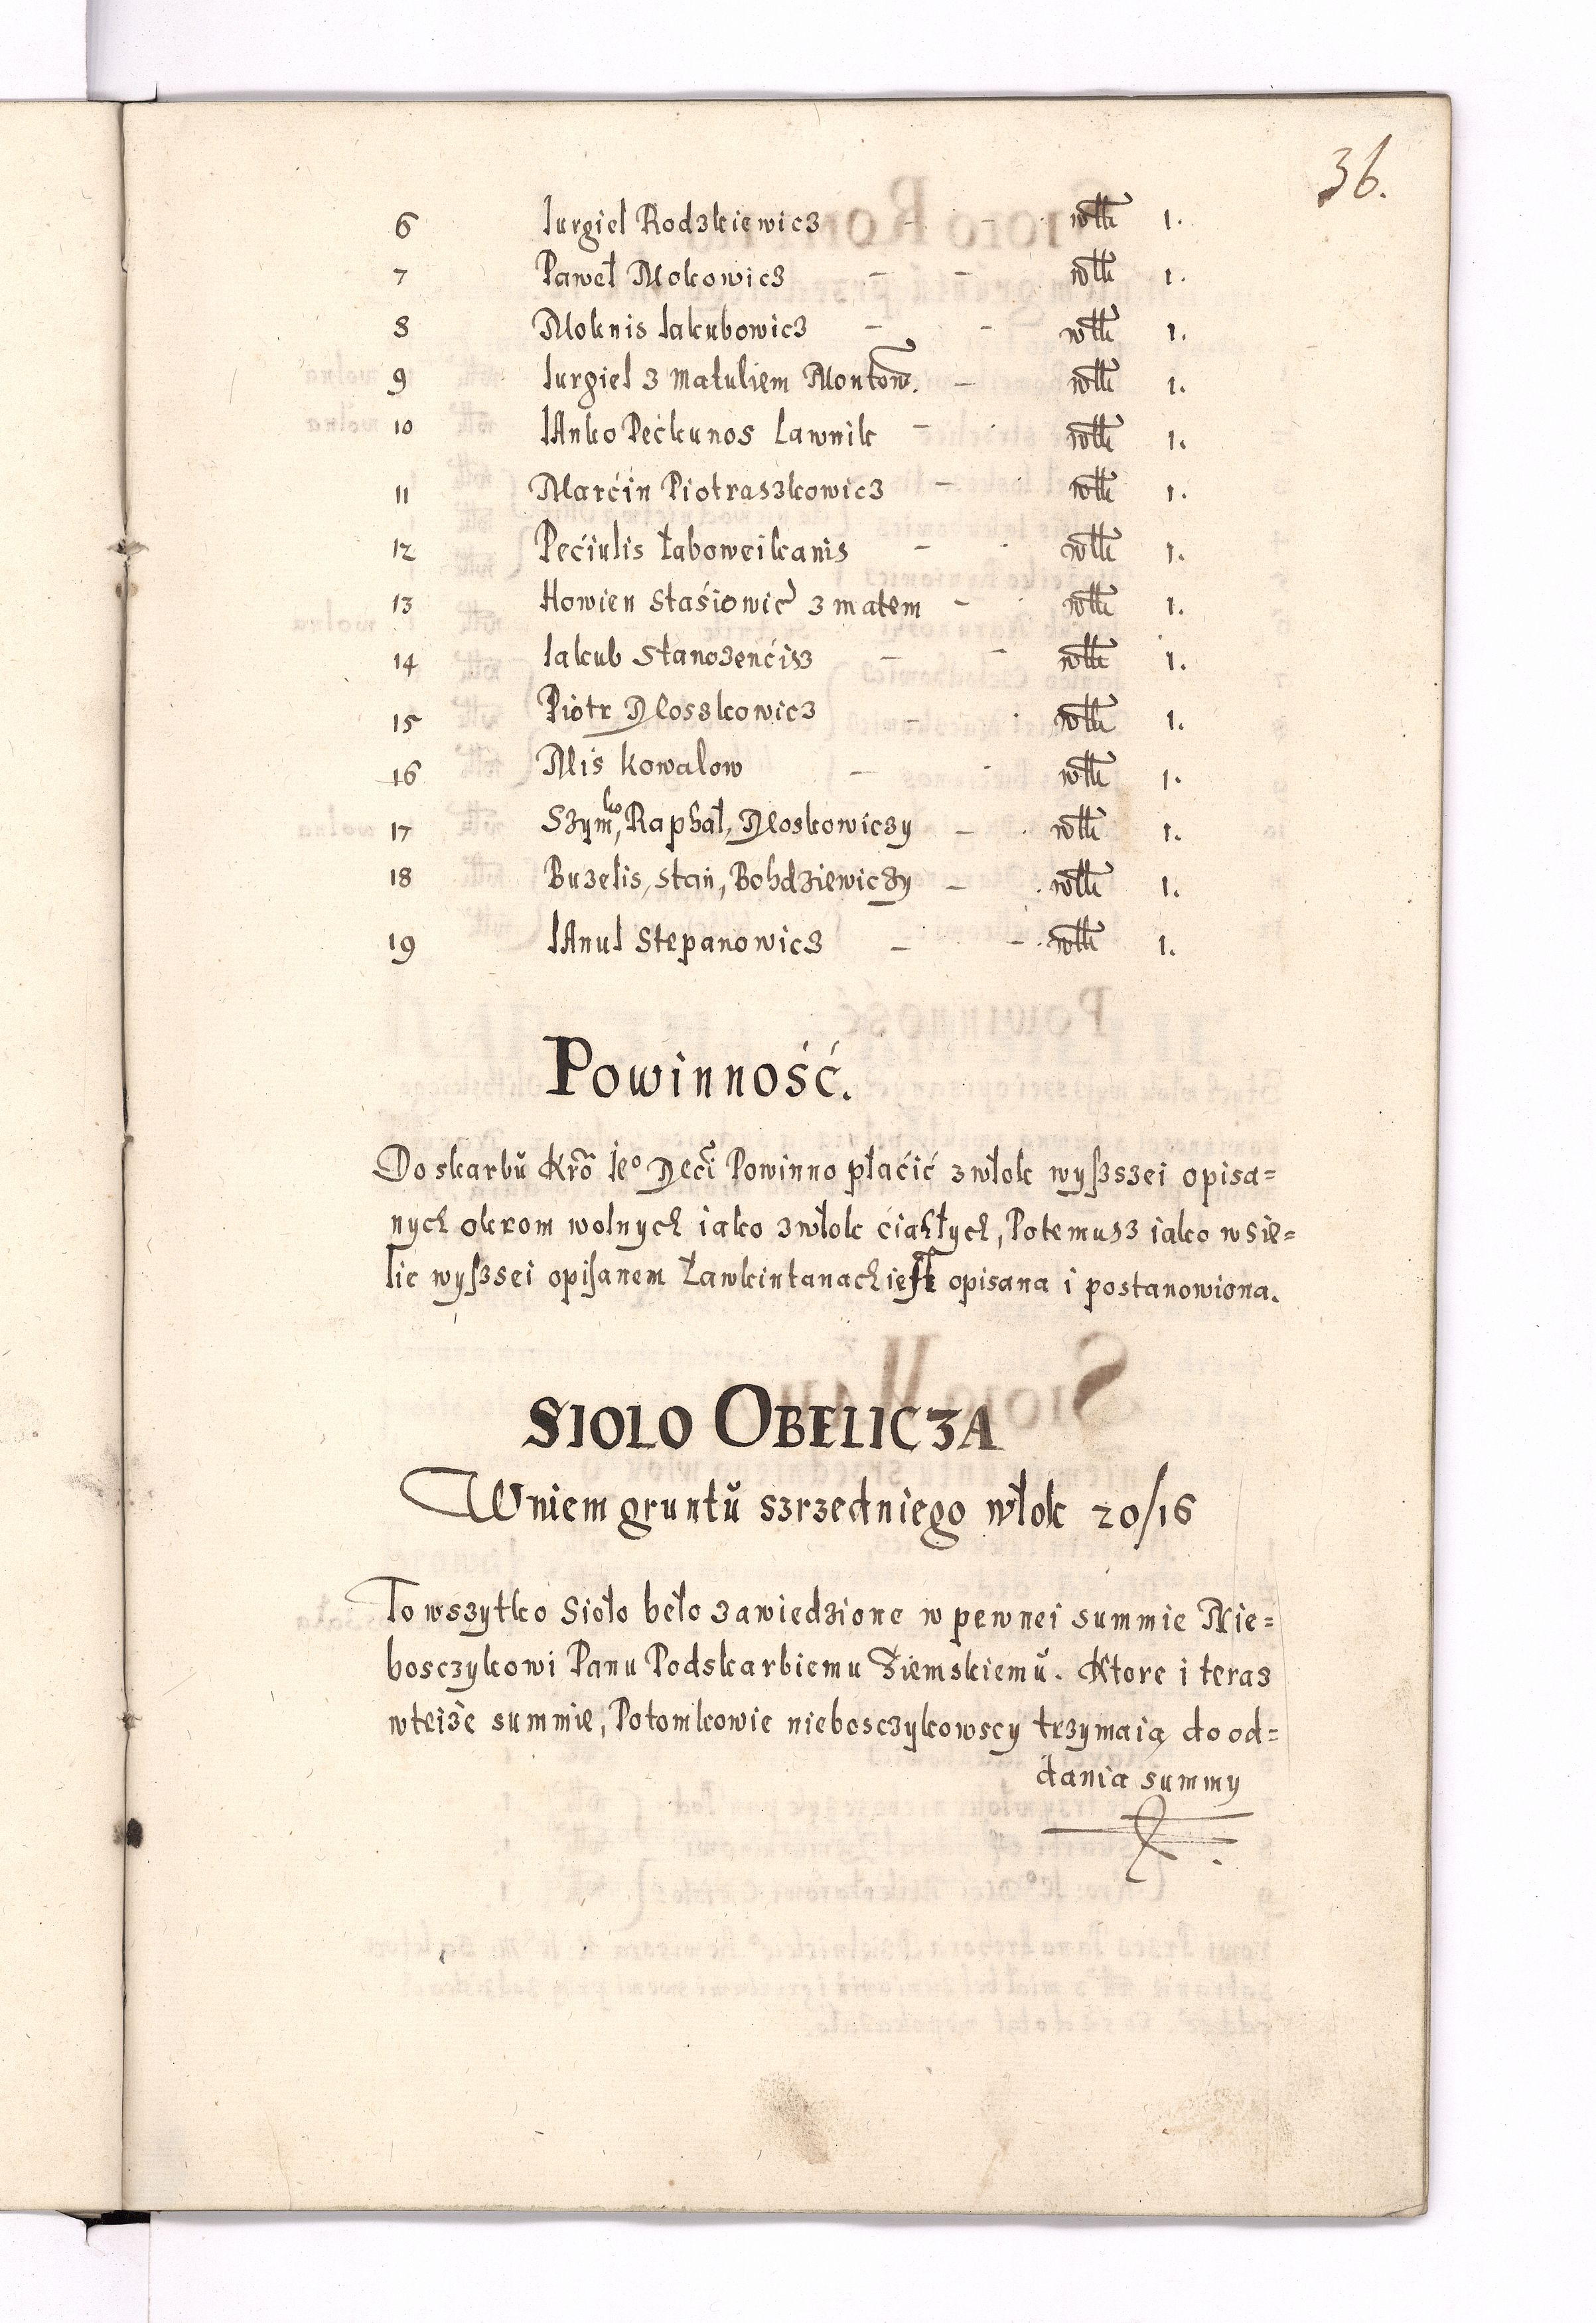 36.
6 Iurgiel Rodzkiewicz - - włk 1.
7 Paweł Mokowicz - - włk 1.
8 Moknis Iakubowicz - - włk 1.
9 Iurgiel z Matuliem Montow. - włk 1.
10 IAnko Pećkunos Lawnik - włk 1.
11 Marćin Piotraszkowicz - włk 1.
12 Pećiulis Łaboweikanis - włk 1.
13 Howien Staśiowic z matem - włk 1.
14 Iakub Stanozenćisz - - włk 1.
15 Piotr Moszkowicz - włk 1.
16 Mis Kowalow - włk 1.
17 Szymko, Raphał, Moskowiczy - włk 1.
18 Buzelis, Stań, Bohdziewiczy - włk 1.
19 IAnul Stepanowicz - - włk 1.
Powinność.
Do skarbŭ Kro Ie° Mći Powinno płaćić z włok wyższei opisa=
nych okrom wolnych iako z włok ćiahłych, Potemusz iako w sie=
lie wyszsei opisanem Ławkintanach iest opisana i postanowiona.
SIOLO OBELICZA
W niem gruntŭ szrzedniego włok 20/16
To wszytko Sioło beło zawiedzione w pewnei summie Nie=
bosczykowi Panu Podskarbiemu Ziemskiemŭ. Ktore i teraz
wteiże summie, Potomkowie niebosczykowscy trzymaią do od=
dania summy